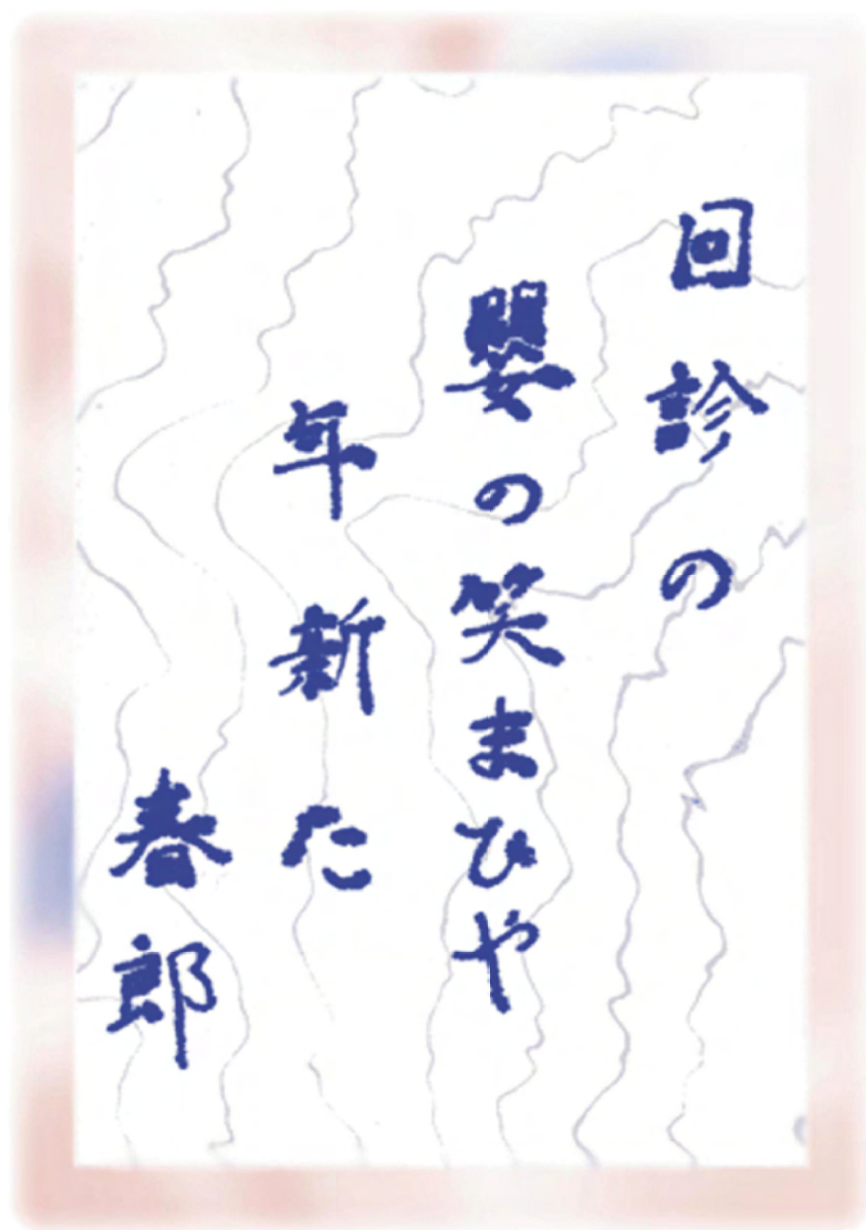 回診の
嬰の笑まひや
年新た
春郎